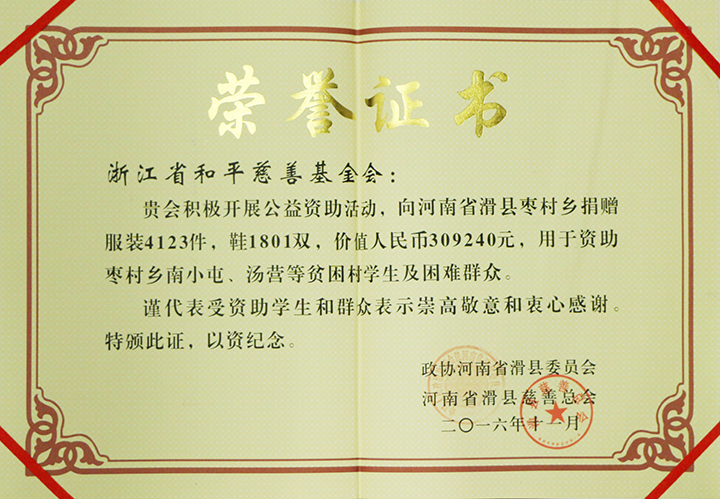 荣誉证书
浙江省和平慈善基金会：
贵会积极开展公益资助活动，向河南省滑县枣村乡捐赠
服装4123件，鞋1801双，价值人民币309240元，用于资助
枣村乡南小屯、汤营等贫困村学生及困难群众。
谨代表受资助学生和群众表示崇高敬意和衷心感谢。
特颁此证，以资纪念。
政协河南省滑县委员会
河南省滑县慈善总会
二〇一六年十一月